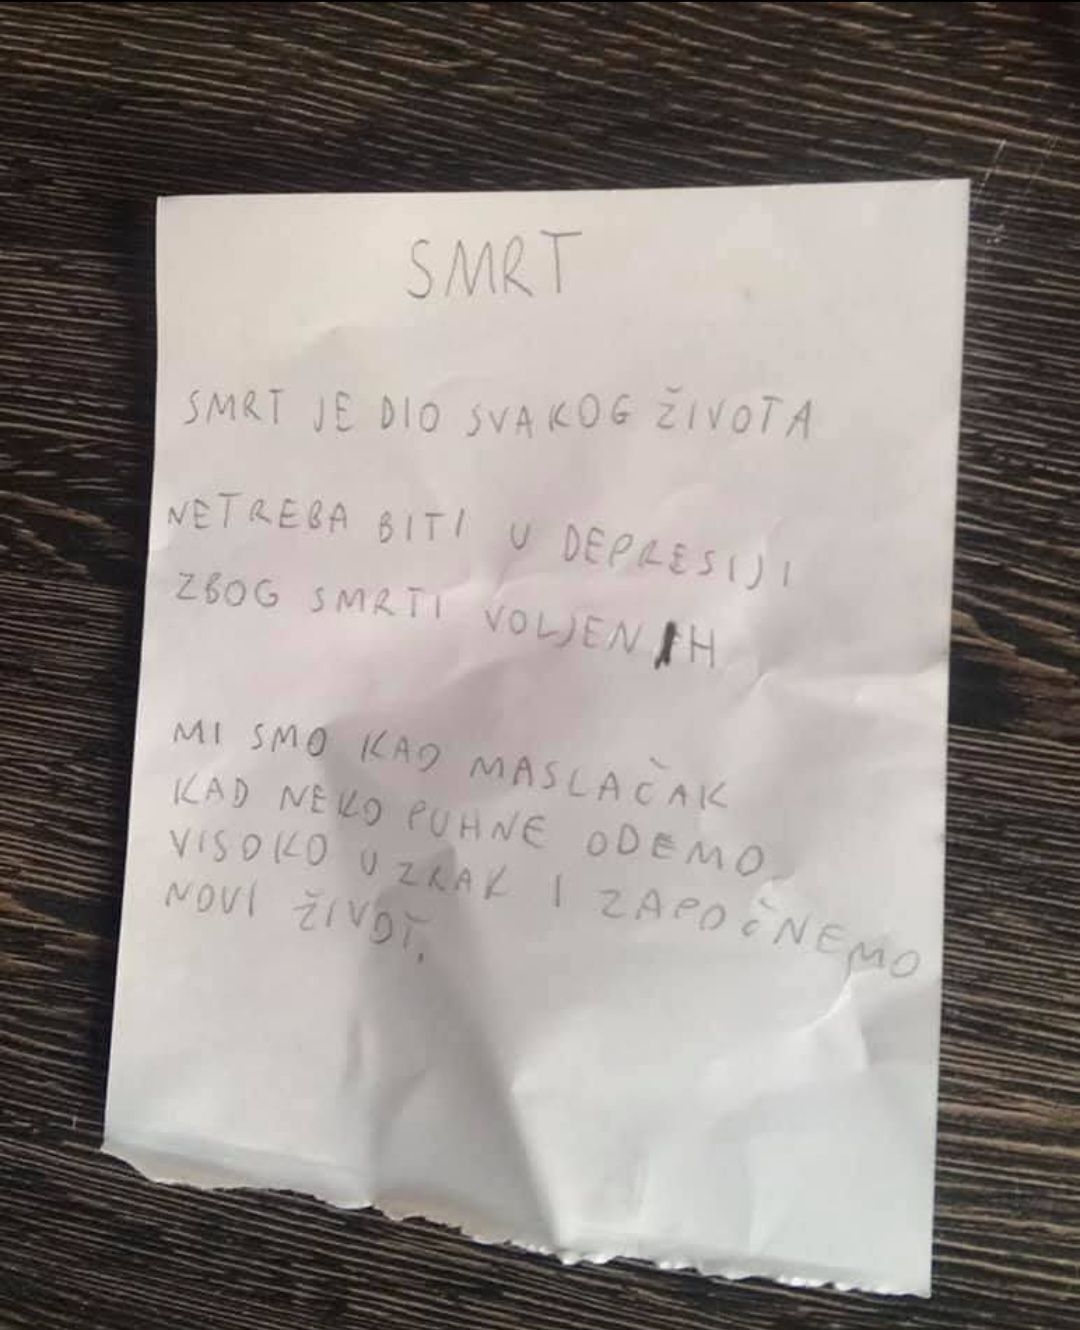 SMRT
SMRT JE DIO SVAKOG ŽIVOTA
NETREBA BITI U DEPRESIJI
ZBOG SMRTI VOLJENIH
MI SMO KAO MASLAČAK
KAD NEKO PUHNE ODEMO
VISOKO U ZRAK I ZAPOČNEMO
NOVI ŽIVOT.